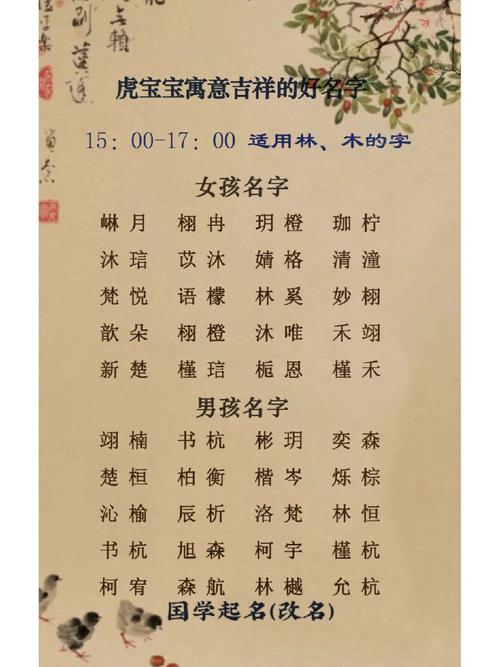 虎宝宝寓意吉祥的好名字
15：00-17：00 适用林、木的字
女孩名字
崊月 栩冉 玥橙 珈柠
沐琂 苡沐 婧格 清潼
梵悦 语檬 林奚 妙栩
歆朵 栩橙 沐唯 禾翊
新楚 槿琂 栀恩 槿禾
男孩名字
翊楠 书杭 彬玥 奕森
楚桓 柏衡 楷岑 烁棕
沁榆 辰析 洛梵 林恒
书杭 旭森 柯宇 槿杭
柯宥 森航 林樾 允杭
国学起名(改名)